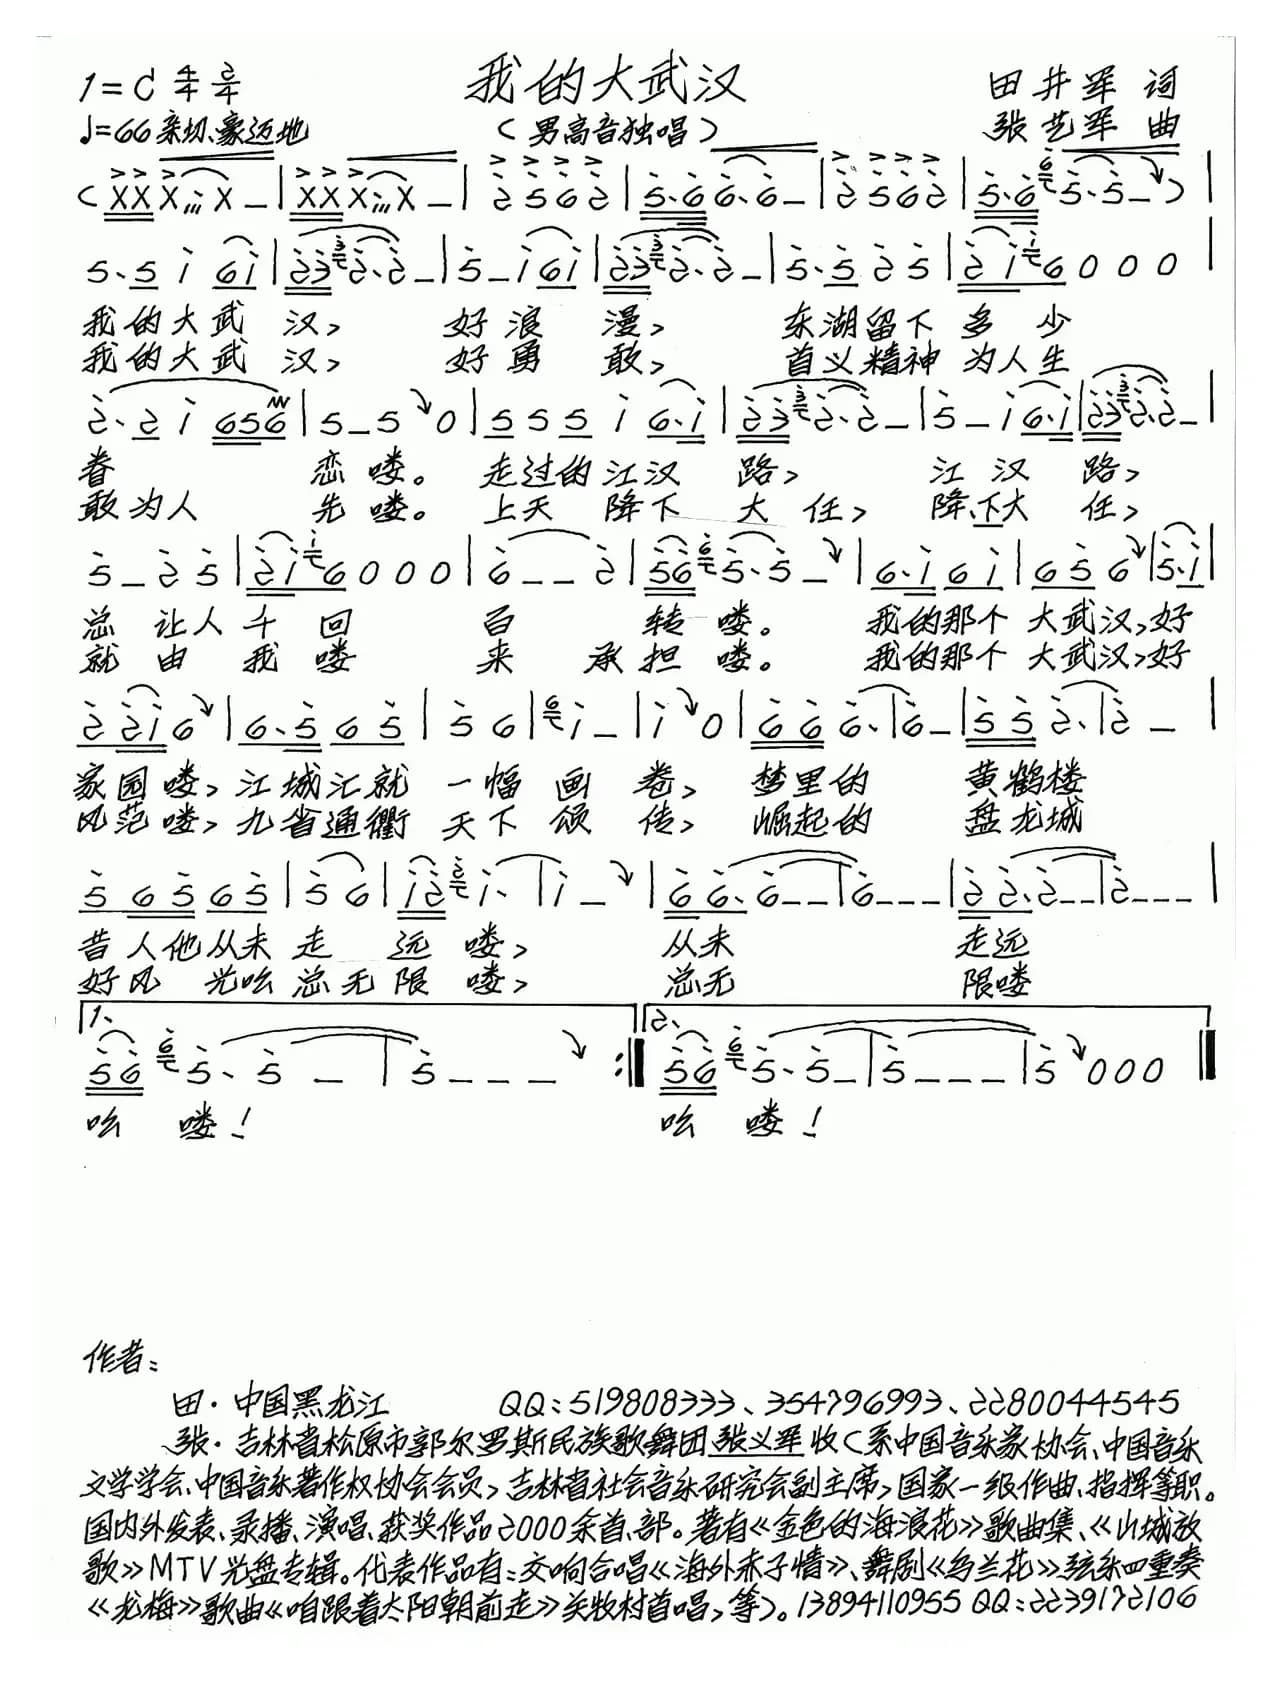 1=C 4/4 2/4 我的大武汉 田井军 词
♩=66 亲切、豪迈地 (男高音独唱) 张艺军 曲
我的大武 汉, 好浪 漫, 东湖留下 多 少
我的大武 汉, 好勇 敢, 首义精神 为人生
眷 恋喽。 走过的江汉 路, 江汉 路,
敢为人 先喽。 上天 降下 大 任, 降、下大 任,
总 让人 千 回 百 转 喽。 我的那个 大武汉,好
就 由 我 喽 来 承担 喽。 我的那个 大武汉,好
家园喽,江城汇就 一幅 画 卷, 梦里的 黄鹤楼
风范喽,九省通衢 天下 颂 传, 崛起的 盘龙城
昔人他从未 走 远 喽, 从未 走远
好风 光吆总无限 喽, 总无 限喽
1、 2、
吆 喽! 吆 喽!
作者:
田·中国黑龙江 QQ:519808333、354796993、2280044545
张·吉林省松原市郭尔罗斯民族歌舞团张义军收(系中国音乐家协会、中国音乐
文学学会、中国音乐著作权协会会员,吉林省社会音乐研究会副主席,国家一级作曲、指挥等职。
国内外发表、录播、演唱、获奖作品2000余首、部。著有《金色的海浪花》歌曲集、《山城放
歌》MTV光盘专辑。代表作品有:交响合唱《海外赤子情》、舞剧《乌兰花》弦乐四重奏
《龙梅》歌曲《咱跟着太阳朝前走》关牧村首唱,等)。13894110955 QQ:2239172106